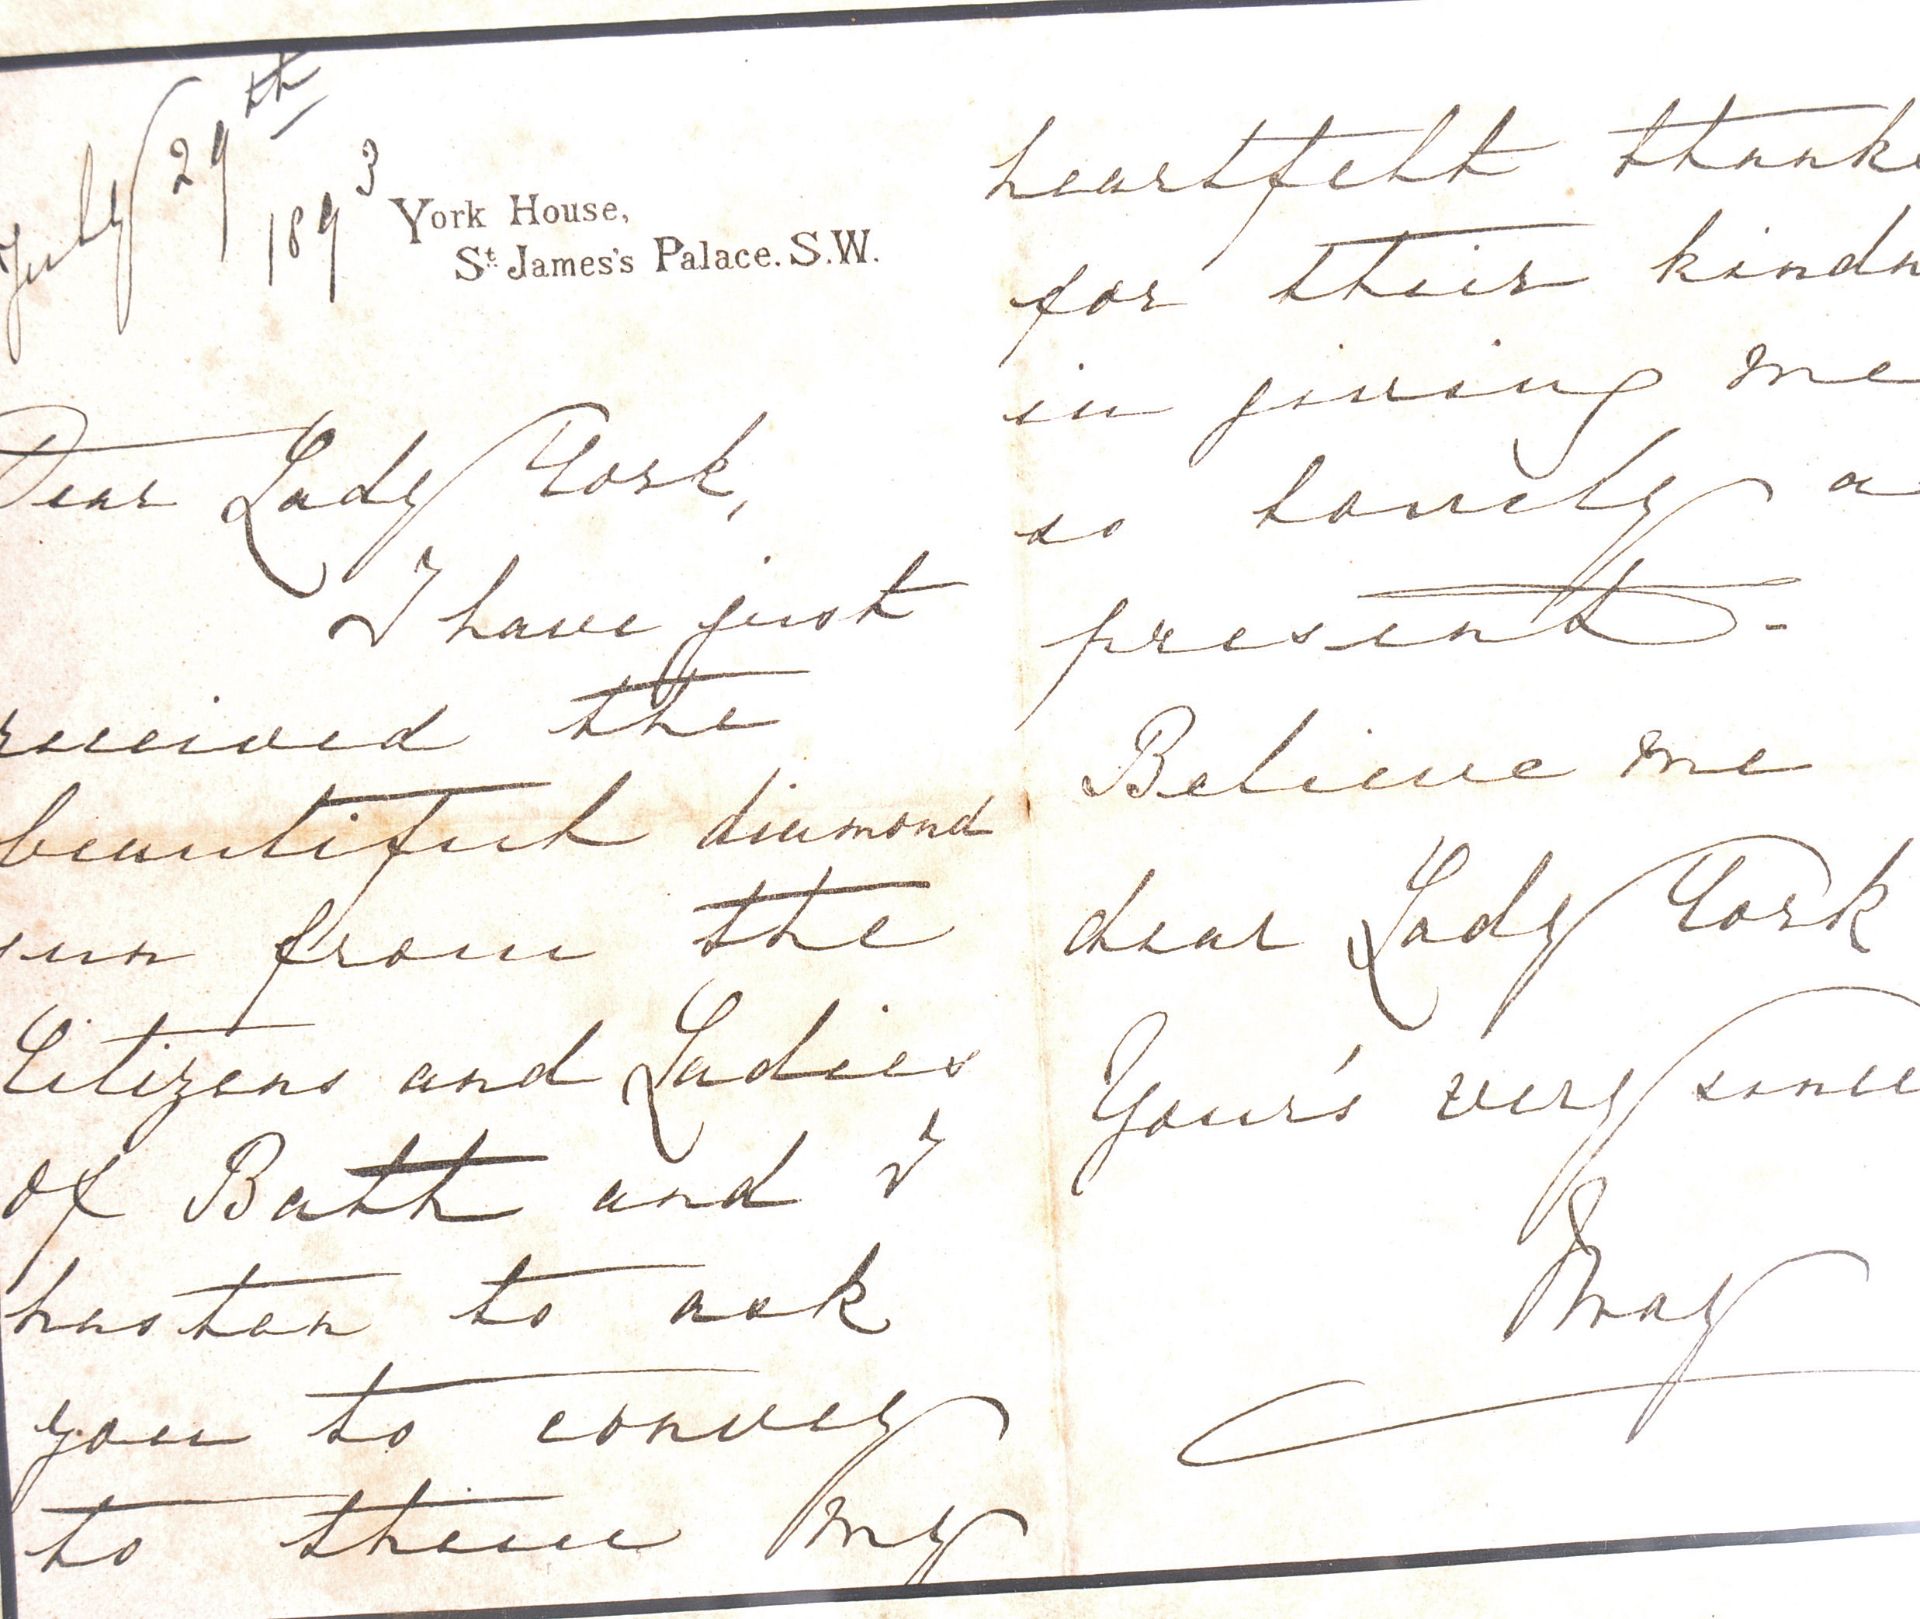 July 29th
1893
York House,
St James's Palace. S.W.
Dear Lady York,
I have just
received the
beautiful diamond
sun from the
Citizens and Ladies
of Bath and I
hasten to ask
you to convey
to them my
heartfelt thanks
for their kindn
in giving me
so lovely a
present-
Believe me
dear Lady York
Your's very since
May